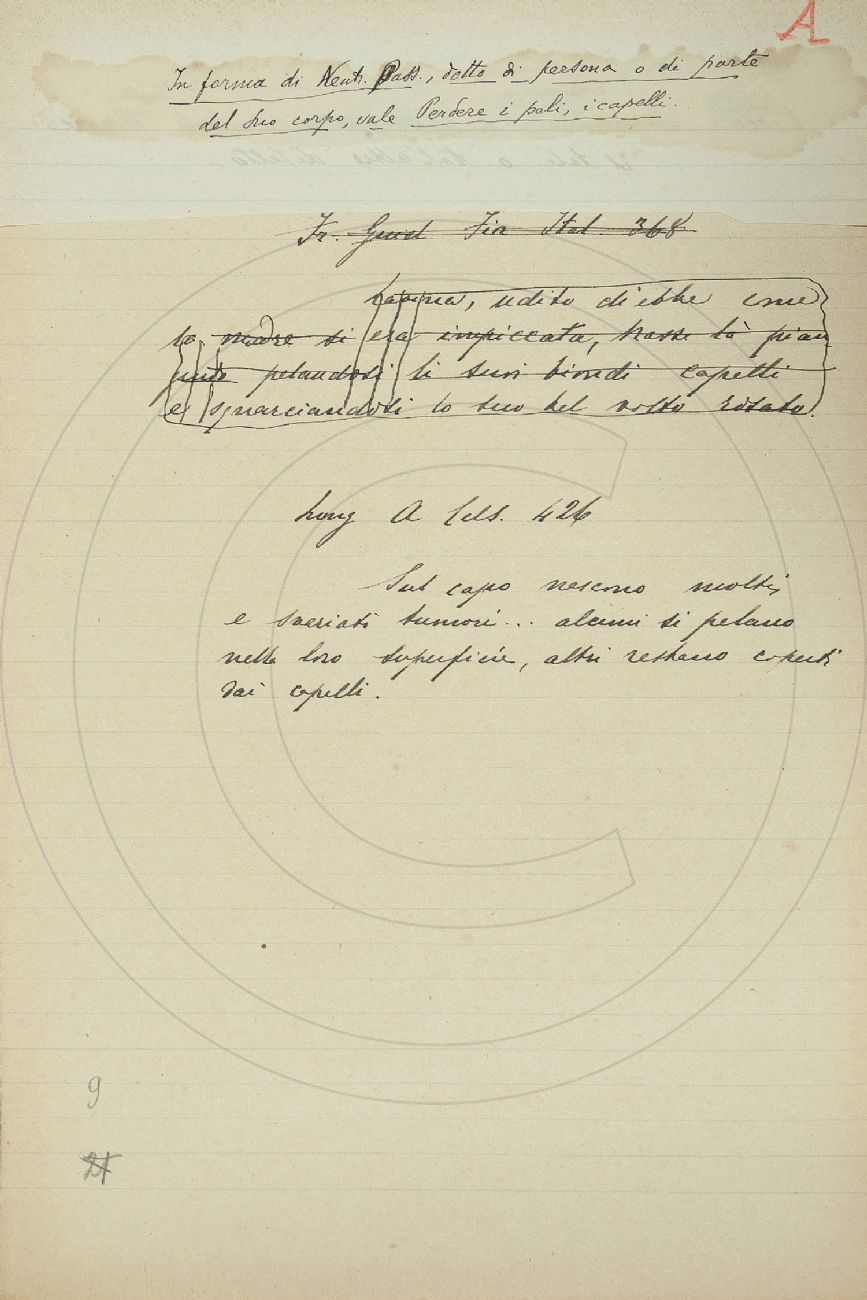 A
In forma di Neutr. Pass., detto di persona o di parte
del suo corpo, vale Perdere i peli, i capelli.
Fr. Guid Fior Ital. 368
Lavina, udito ch'ebbe come
la madre si era impiccata, trasse là pian
gendo pelandosi li suoi biondi capelli
e squarciandosi lo suo bel volto rosato.
Lung A Cels. 426
Sul capo nescono molti,
e svariati tumori... alcuni si pelano
nella loro superficie, altri restano coperti
dai capelli.
9